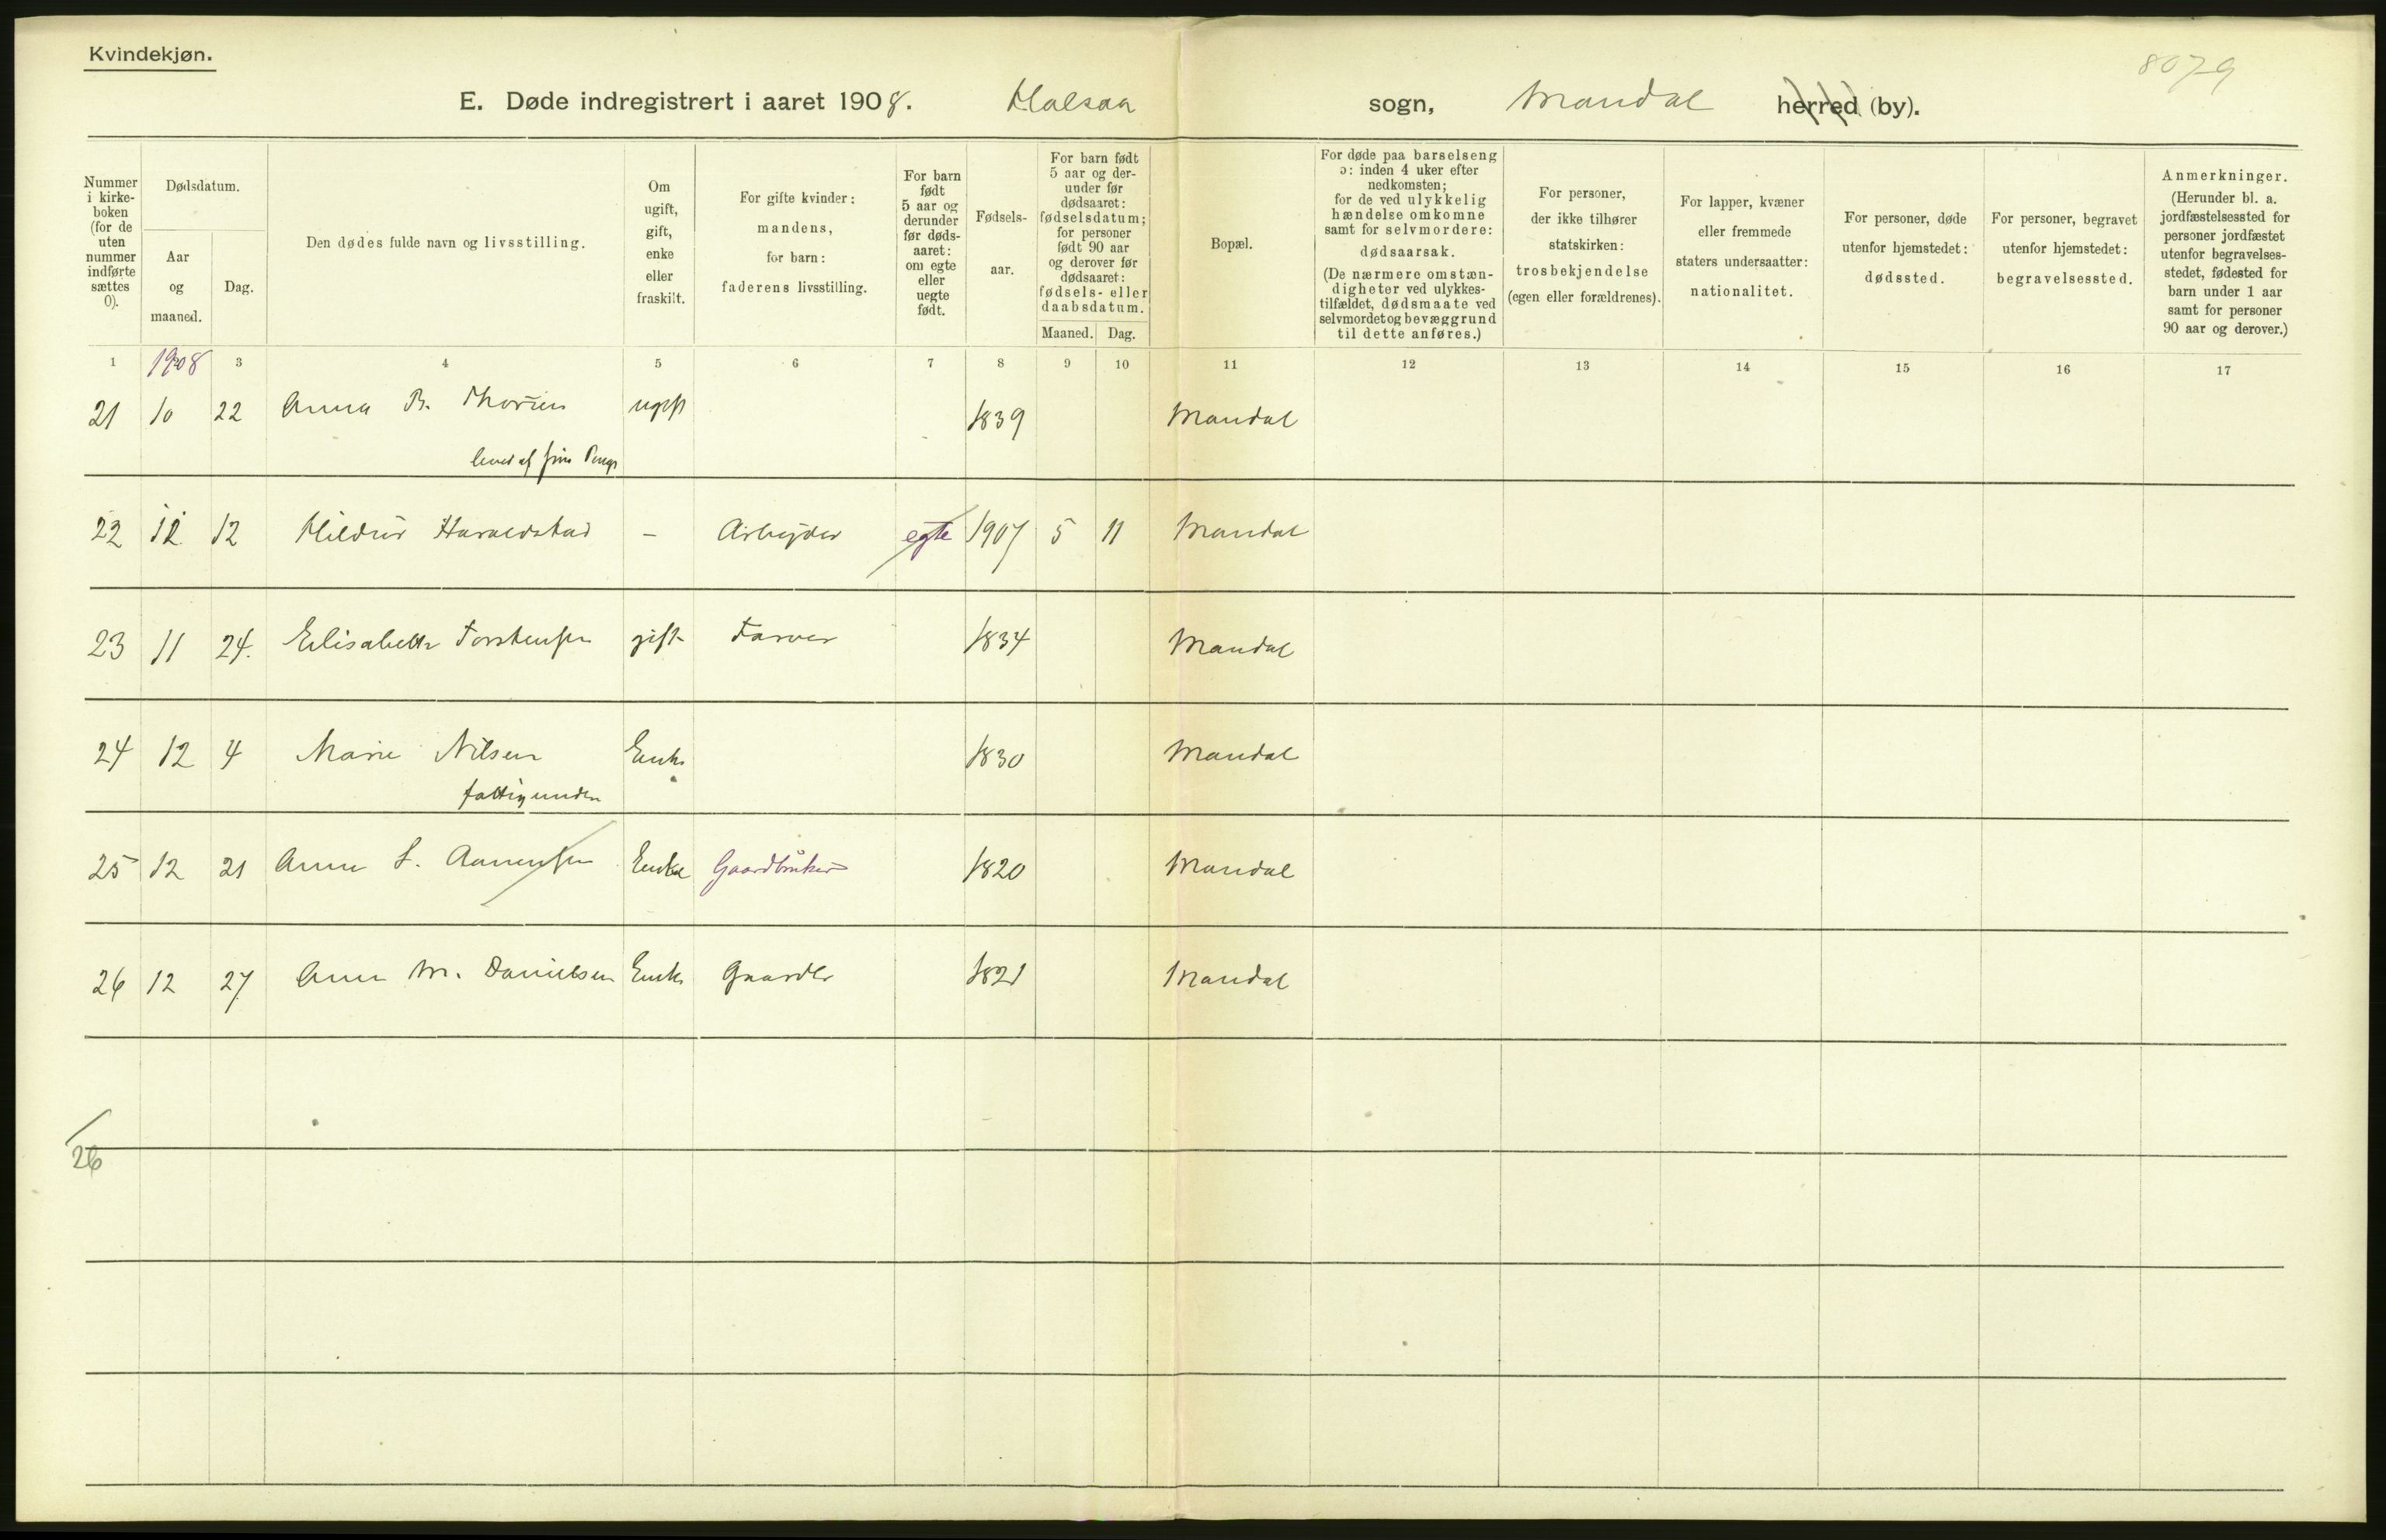 Kvindekjøn.
8079
E. Døde indregistrert i aaret 1908. Halsaa sogn, Mandal herred (by).
Nummer i kirke-boken (for de uten nummer indførte sættes 0).
Dødsdatum.
Aar og maaned.
Dag.
Den dødes fulde navn og livsstilling.
Om ugift, gift, enke eller fraskilt.
For gifte kvinder: mandens, for barn: faderens livsstilling.
For barn født 5 aar og derunder før døds-aaret: om egte eller uegte født.
Fødsels-aar.
For barn født 5 aar og der-under før dødsaaret: fødselsdatum; for personer født 90 aar og derover før dødsaaret: fødsels- eller daabsdatum.
Maaned. Dag.
Bopæl.
For døde paa barselseng ɔ: inden 4 uker efter nedkomsten; for de ved ulykkelig hændelse omkomne samt for selvmordere: dødsaarsak. (De nærmere omstæn-digheter ved ulykkes-tilfældet, dødsmaate ved selvmordet og bevæggrund til dette anføres.)
For personer, der ikke tilhører statskirken: trosbekjendelse (egen eller forældrenes).
For lapper, kvæner eller fremmede staters undersaatter: nationalitet.
For personer, døde utenfor hjemstedet: dødssted.
For personer, begravet utenfor hjemstedet: begravelsessted.
Anmerkninger. (Herunder bl. a. jordfæstelsessted for personer jordfæstet utenfor begravelses-stedet, fødested for barn under 1 aar samt for personer 90 aar og derover.)
1 1908 3 4 5 6 7 8 9 10 11 12 13 14 15 16 17
21 10 22 Anna B. ugift 1839 Mandal
levet af sine
22 12 12 Hildur Haraldstad - Arbeyder egte 1907 5 11 Mandal
23 11 24. Elisabeth Torstensen gift Farver 1834 Mandal
24 12 4 Marie Nilsen Enke 1830 Mandal
fattigunder
25 12 21 Anne L. Aanensen Enke Gaardbruker 1820 Mandal
26 12 27 Anne M. Danielsen Enke Gaardbr 1821 Mandal
26